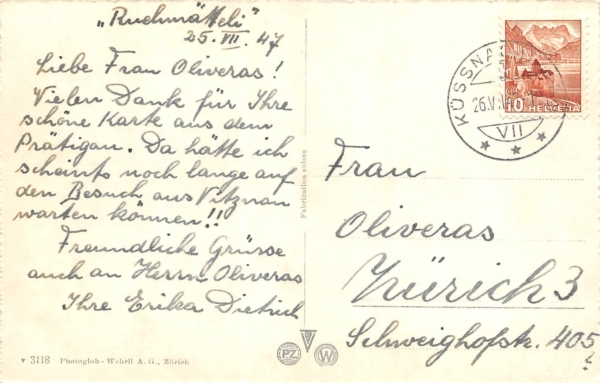 „Ruehmätteli"
25. VII. 47
Liebe Frau Oliveras!
Vielen Dank für Ihre
schöne Karte aus dem
Prätigau. Da hätte ich
scheints noch lange auf
den Besuch aus Vitznau
warten können!!
Freundliche Grüsse
auch an Herrn Oliveras
Ihre Erika Dietrich
Fabrication suisse
10 HELVETIA
KÜSSNA
26.V
VII
Frau
Oliveras
Zürich 3
Schweighofstr. 405
v 3118 Photoglob-Wehrli A. G., Zürich
PZ W